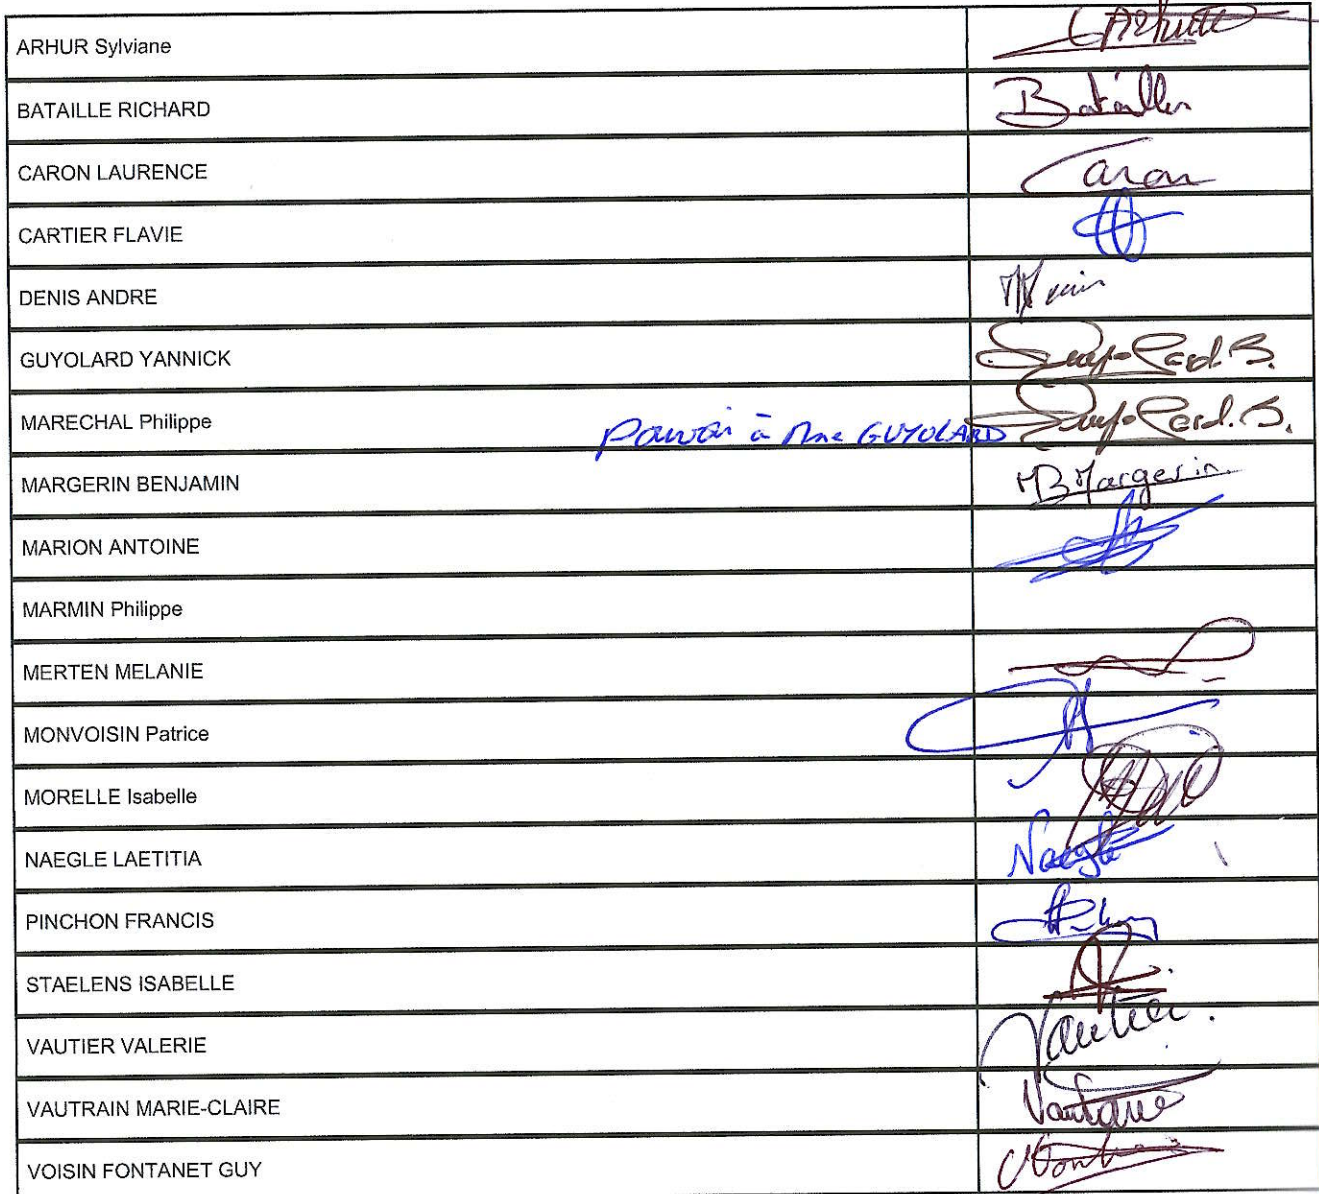 ARHUR Sylviane
BATAILLE RICHARD Bataille
CARON LAURENCE Caron
CARTIER FLAVIE
DENIS ANDRE
GUYOLARD YANNICK
MARECHAL Philippe Pouvoir à Mme GUYOLARD
MARGERIN BENJAMIN Margerin
MARION ANTOINE
MARMIN Philippe
MERTEN MELANIE
MONVOISIN Patrice
MORELLE Isabelle
NAEGLE LAETITIA Naegle
PINCHON FRANCIS
STAELENS ISABELLE
VAUTIER VALERIE Vautier
VAUTRAIN MARIE-CLAIRE
VOISIN FONTANET GUY